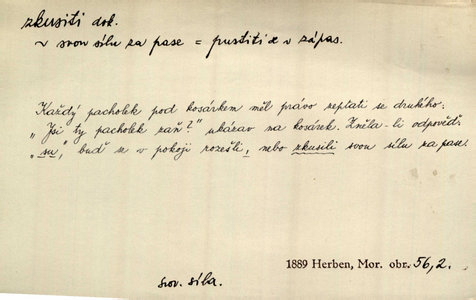 zkusiti dok.
~ svou sílu za pase = pustiti se v zápas.
Každý pacholek pod kosárkem měl právo zeptati se druhého:
„Jsi ty pacholek zaň?" ukázav na kosárek. Zněla-li odpověď:
„su", buď se v pokoji rozešli, nebo zkusili svou sílu za pase.
1889 Herben, Mor. obr. 56,2.
srov. síla.